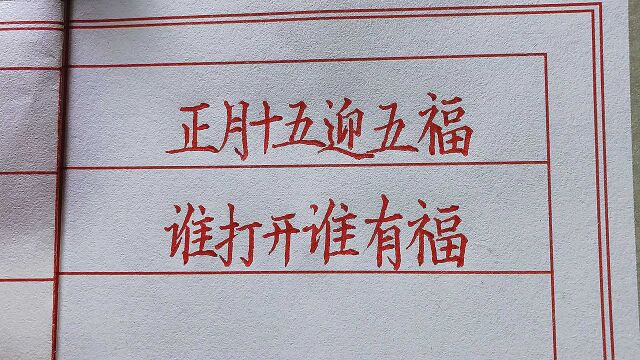 正月十五迎五福
谁打开谁有福